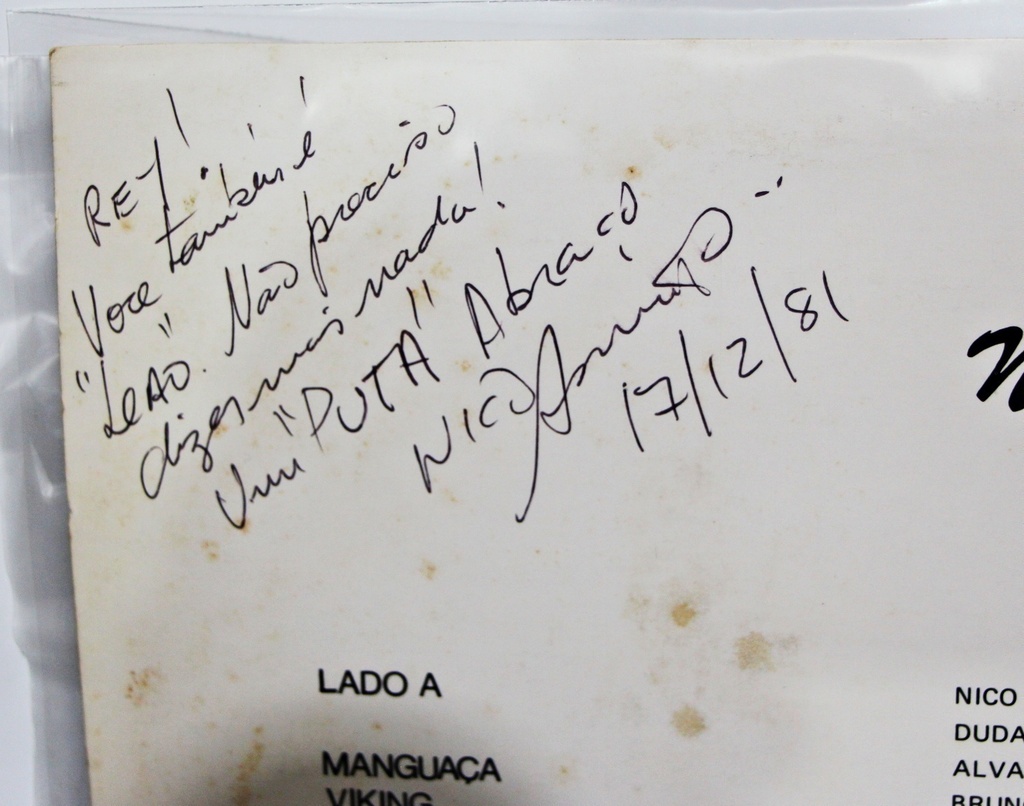 REY!
Voce também é
"LEÃO". Não preciso
dizer mais nada!
Um "PUTA" Abraço
NICO Assumpção
17/12/81
LADO A
MANGUAÇA
VIKING
NICO
DUDA
ALVA
BRUN